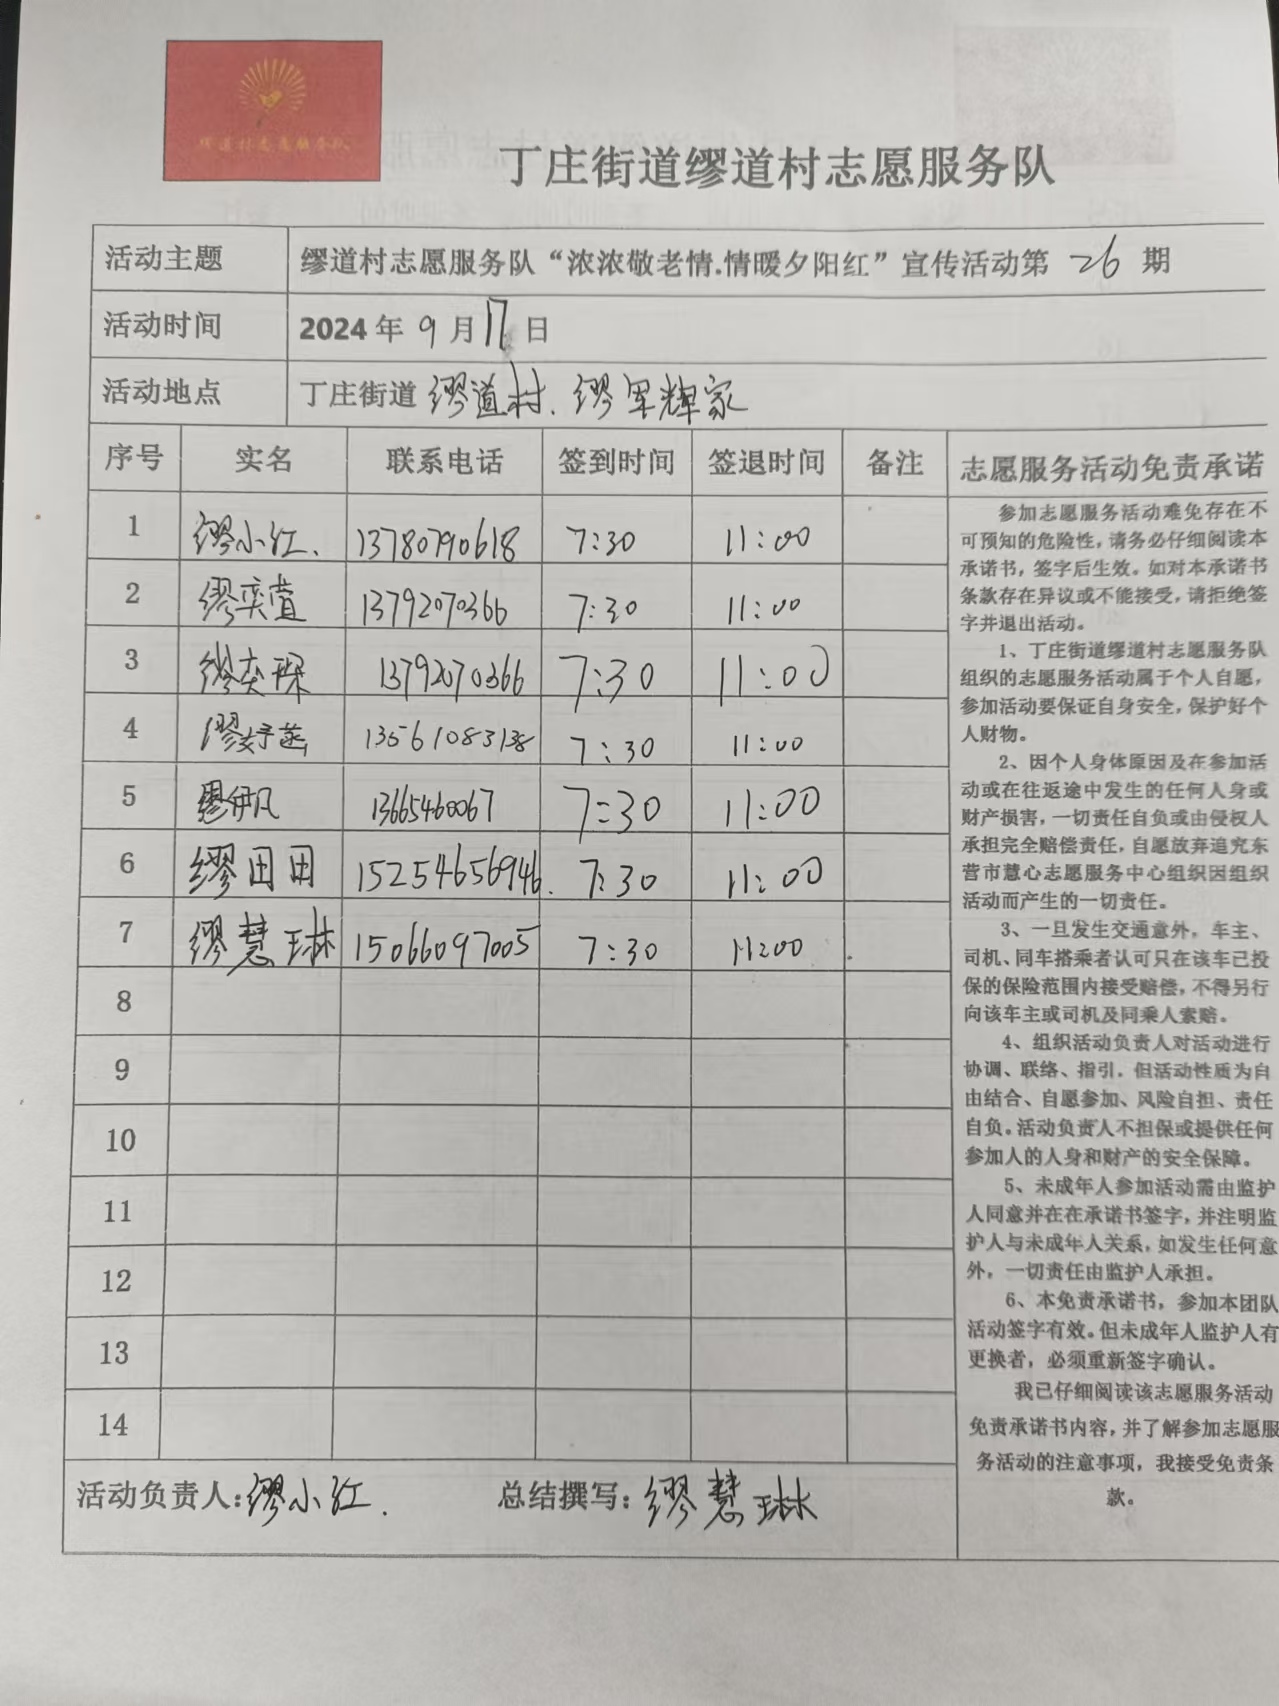 缪道村志愿服务队
丁庄街道缪道村志愿服务队
活动主题 缪道村志愿服务队“浓浓敬老情.情暖夕阳红”宣传活动第 26 期
活动时间 2024 年 9 月 17 日
活动地点 丁庄街道 缪道村、缪军辉家
序号 实名 联系电话 签到时间 签退时间 备注
1 缪小红. 13780790618 7:30 11:00
2 缪奕萱 13792070366 7:30 11:00
3 缪奕琛 13792070366 7:30 11:00
4 缪妤菡 13561083138 7:30 11:00
5 缪伊凡 13665460067 7:30 11:00
6 缪田田 15254656946. 7:30 11:00
7 缪慧琳 15066097005 7:30 11:00
8
9
10
11
12
13
14
活动负责人:缪小红. 总结撰写:缪慧琳
志愿服务活动免责承诺
参加志愿服务活动难免存在不
可预知的危险性，请务必仔细阅读本
承诺书，签字后生效。如对本承诺书
条款存在异议或不能接受，请拒绝签
字并退出活动。
1、丁庄街道缪道村志愿服务队
组织的志愿服务活动属于个人自愿，
参加活动要保证自身安全，保护好个
人财物。
2、因个人身体原因及在参加活
动或在往返途中发生的任何人身或
财产损害，一切责任自负或由侵权人
承担完全赔偿责任，自愿放弃追究东
营市慧心志愿服务中心组织因组织
活动而产生的一切责任。
3、一旦发生交通意外，车主、
司机、同车搭乘者认可只在该车已投
保的保险范围内接受赔偿，不得另行
向该车主或司机及同乘人索赔。
4、组织活动负责人对活动进行
协调、联络、指引．但活动性质为自
由结合、自愿参加、风险自担、责任
自负。活动负责人不担保或提供任何
参加人的人身和财产的安全保障。
5、未成年人参加活动需由监护
人同意并在在承诺书签字，并注明监
护人与未成年人关系，如发生任何意
外，一切责任由监护人承担。
6、本免责承诺书，参加本团队
活动签字有效。但未成年人监护人有
更换者，必须重新签字确认。
我已仔细阅读该志愿服务活动
免责承诺书内容，并了解参加志愿服
务活动的注意事项，我接受免责条
款。